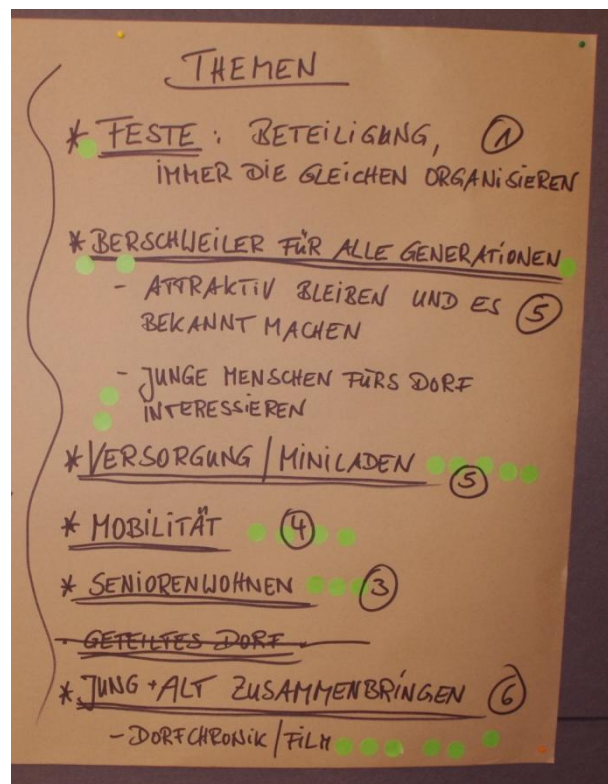 THEMEN
* FESTE : BETEILIGUNG, 1
IMMER DIE GLEICHEN ORGANISIEREN
* BERSCHWEILER FÜR ALLE GENERATIONEN
- ATTRAKTIV BLEIBEN UND ES 5
BEKANNT MACHEN
- JUNGE MENSCHEN FÜRS DORF
INTERESSIEREN
* VERSORGUNG / MINILADEN 5
* MOBILITÄT 4
* SENIORENWOHNEN 3
- GETEILTES DORF
* JUNG + ALT ZUSAMMENBRINGEN 6
- DORFCHRONIK / FILM